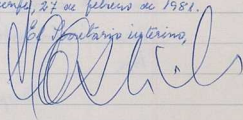 27 de febrero de 1981.
El Secretario interino,